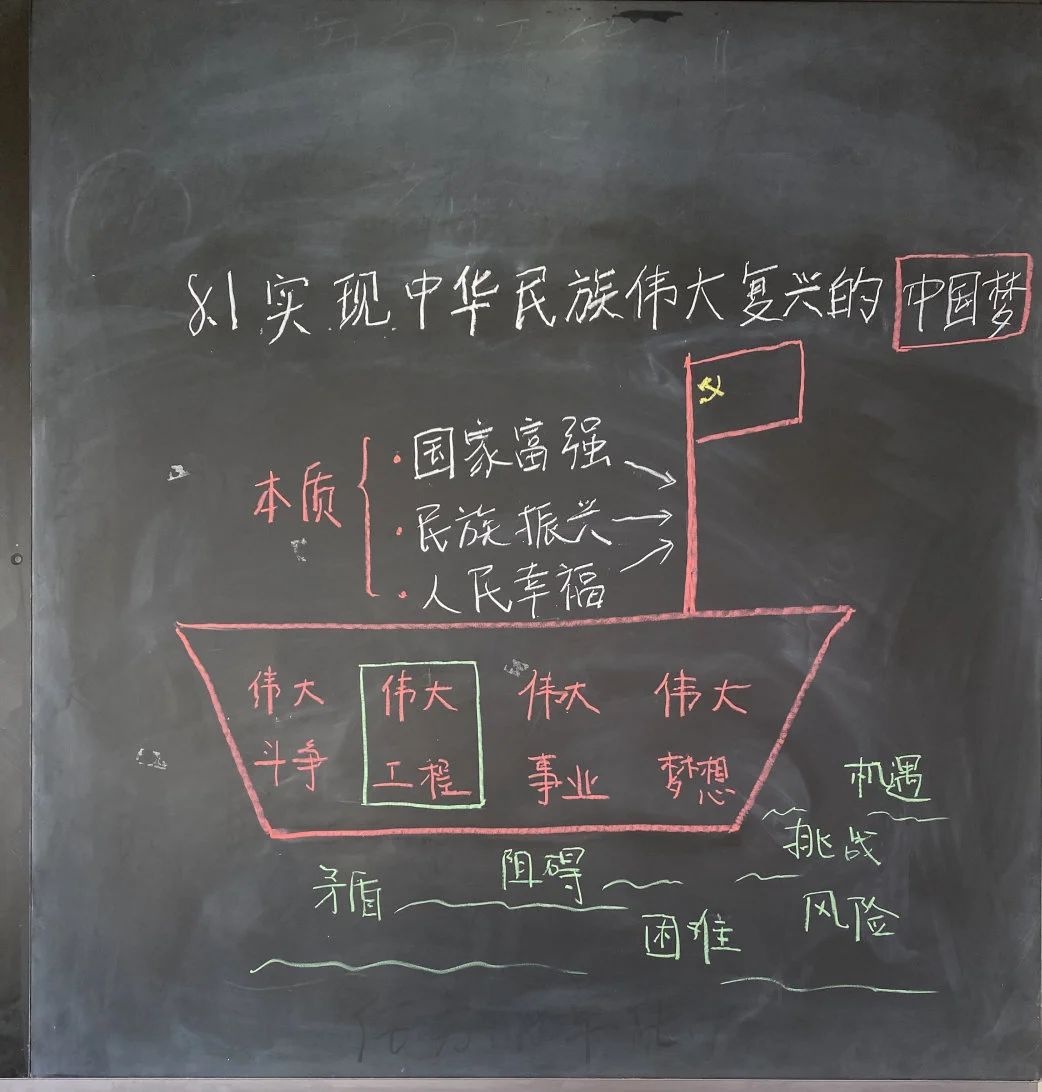 8.1 实现中华民族伟大复兴的中国梦
本质
·国家富强
·民族振兴
·人民幸福
伟大 伟大 伟大 伟大
斗争 工程 事业 梦想
机遇
挑战
阻碍
矛盾
风险
困难